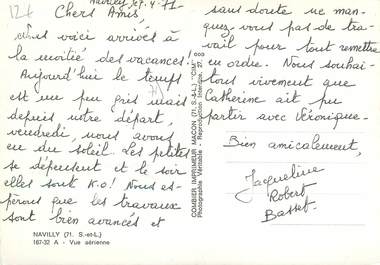 12+
Navilly, 27.4.71
Chers Amis,
Nous voici arrivés à
la moitié des vacances!
Aujourd'hui le temps
est un peu gris mais
depuis notre départ,
vendredi, nous avons
eu du soleil. Les petites
se dépensent et le soir
elles sont K.O! Nous es-
pérons que les travaux
sont bien avancés et
NAVILLY (71. S.-et-L.)
167-32 A - Vue aérienne
COMBIER IMPRIMEUR MACON (71. S.-&-L.) "CIM"
Photographie Véritable - Reproduction Interdite.
sans doute ne man-
quez-vous pas de tra-
vail pour tout remettre
en ordre. Nous souhai-
tons vivement que
Catherine ait pu
partir avec Véronique.
Bien amicalement,
Jacqueline
Robert
Basset.